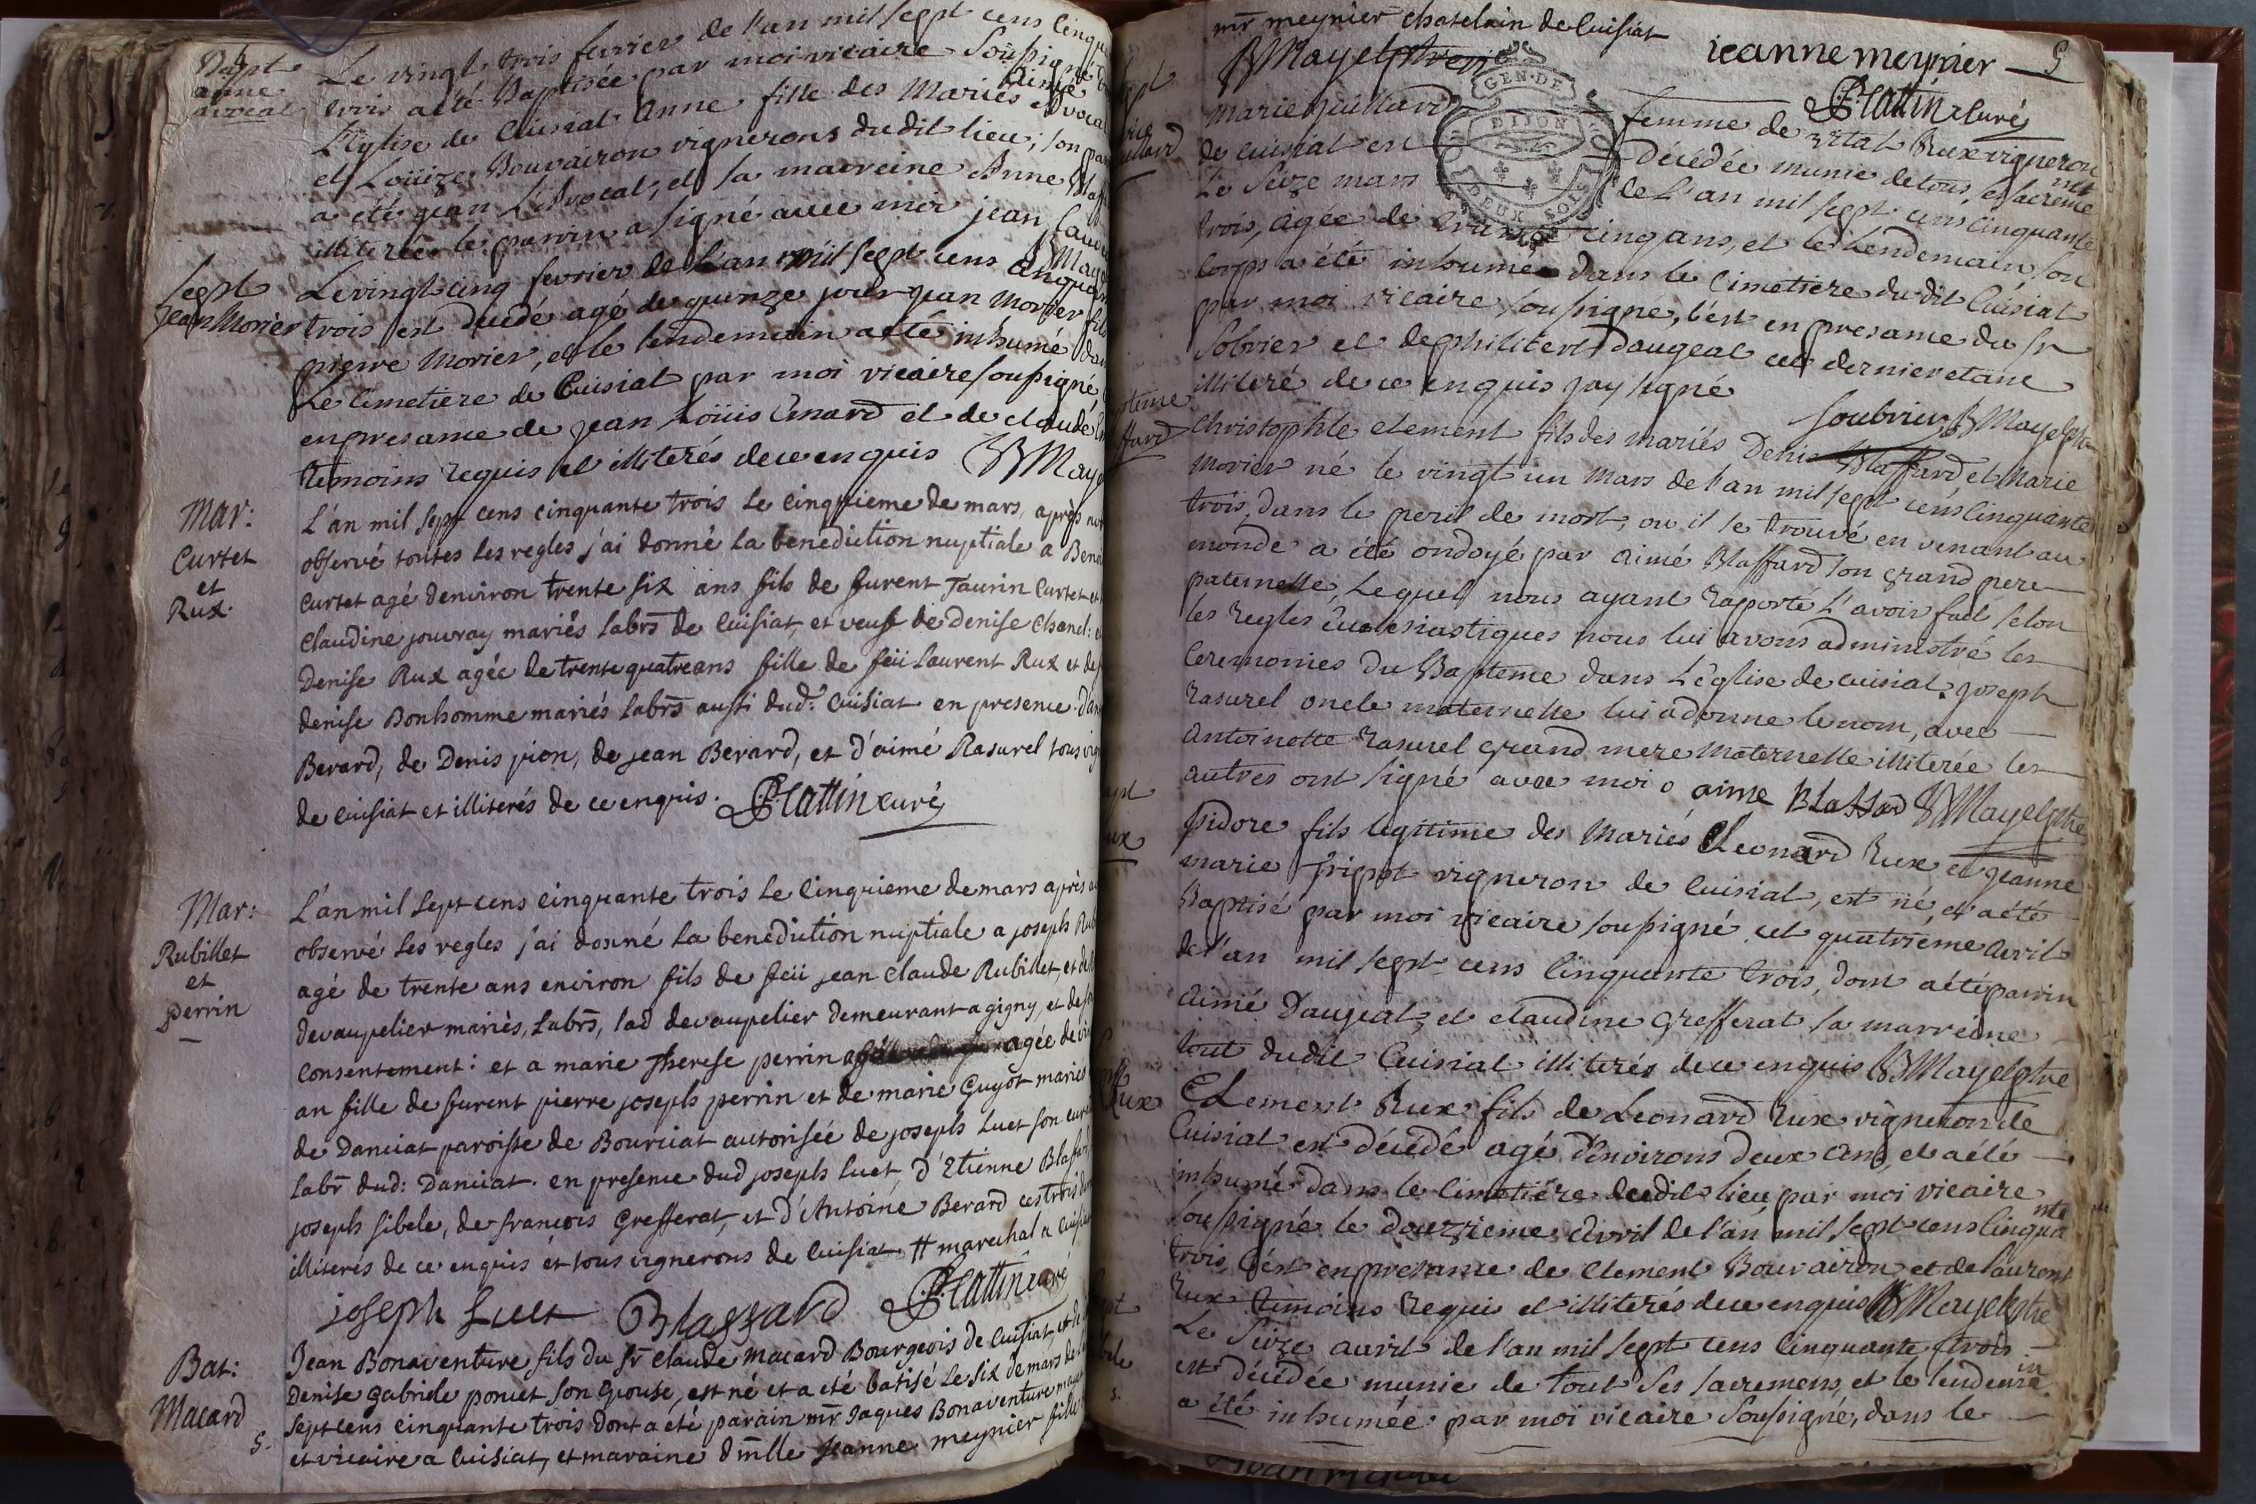 Bapt
anne
avocat
Le vingt trois fevrier de l'an mil sept cens cinqu
trois a été Baptisée par moi vicaire Soußigné
L'Eglise de Cuisiat Anne fille des Mariés Aimé Avocat
et Loüize Bouvairon vignerons dudit lieu; son par
a été jean L'Avocat, et sa marreine Anne Blaff
illiterée le parrin a signé avec moi jean Lauoc
BMaye
Sept
jean Morier
Le vingt cinq fevrier de L'an mil sept cens cinquan
trois est decedé agé de quinze jour jean Morier fils
pierre Morier, et le lendemain a eté inhumé dan
Le Cimetiere de Cuisiat par moi vicaire soußigné,
en presance de jean Loüis Emard et de claude
temoins requis et illiterés de ce enquis BMaye
Mar:
Curtet
et
Rux.
L'an mil sept cens cinquante trois le cinquieme de mars, après avoir
observé toutes les regles j'ai donné la benediction nuptiale a Beno
Curtet agé d'environ trente six ans fils de furent Taurin Curtet et
Claudine jouvray mariés labrs de Cuisiat, et veuf de Denise Chanel: et
Denise Rux agée de trente quatre ans fille de feü Laurent Rux et de
denise Bonhomme mariés labrs aussi dud: Cuisiat en presence d'an
Berard, de Denis pion, de jean Berard, et d'aimé Rasurel tous vig
de Cuisiat et illiterés de ce enquis. P. Cattin curé
Mar:
Rubillet
et
perrin
L'an mil sept cens cinquante trois le cinquieme de mars après a
observé les regles j'ai donné la benediction nuptiale a joseph Rub
agé de trente ans environ fils de feü jean claude Rubillet, et de
devaupelier mariés, labrs, lad devaupelier demeurant a gigny, et de son
consentement: et a marie Therese perrin agée de vi
an fille de furent pierre joseph perrin et de marie Guyot mariés
de Danciat paroisse de Bourciat autorisée de joseph Luet son cura
labr dud: Danciat. en presence dud joseph Luet, d'Etienne Blaffar
joseph sibele, de françois Grefferat, et d'Antoine Berard ces trois
illiterés de ce enquis et tous vignerons de Cuisiat. # marechal a Cuisia
joseph Luet Blaffard P. Cattin curé
Bat:
Macard
s.
Jean Bonaventure fils du Sr Claude Macard Bourgeois de Cuisiat, et de
Denise gabriele poncet son epouse, est né et a été batisé le six de mars de l
sept cens cinquante trois dont a été parain mr Jaques Bonaventure may
et vicaire a Cuisiat, et maraine dmlle jeanne meynier fille
mr meynier chatelain de Cuisiat
BMayelptre jeanne meynier 5
P. Cattin Curé
GEN. DE
DIJON
DEUX SOLS
Marie Juillard femme de vital Rux vigneron
de Cuisiat est décédée munie de tous, es sacreme
nts
Le Séize mars de L'an mil sept cens cinquante
trois, agée de trante cinq ans, et le Lendemain son
corps a été inhumée dans le Cimetiere du dit Cuisiat
par moi vicaire, soußigné, c'est en presance du Sr
Sobrier et de philibert Daugeat ce dernier etant
illiteré de ce enquis jay signé
Soubrier BMayelptre
Christophle element fils des mariés Denis Blaffard et Marie
Morier né le vingt un Mars de l'an mil sept cens cinquante
trois, dans le peril de mort, ou il se trouvé en venant au
monde a été ondoyé par aimé Blaffard son grand pere
paternelle, Lequel nous ayant Rapporté L'avoir fait selon
les Regles ecclesiastiques nous lui avons administré les
Ceremonies du Bapteme dans L'église de cuisiat. joseph
Rasurel oncle maternelle lui a donné le nom, avec
Antoinette Rasurel grand mere Maternelle illiterée les
autres ont signé avec moi aime Blaffard BMayelptre
Isidore fils legitime des Mariés Leonard Rux et jeanne
marie Fripot vigneron de Cuisiat, est né, et a été
Baptisé par moi vicaire soußigné cet quatrieme avril
de l'an mil sept cens Cinquante trois, dont a été parrin
aimé Daugeat, et claudine Grefferat sa marreine
tout dudit Cuisiat illiterés de ce enquis BMayelptre
Rux
CLement Rux fils de Leonard Rux vigneron de
Cuisiat est décédé agé d'environs deux ans, et a été
inhumé dans le Cimetiére dudit lieu par moi vicaire
soußigné le douzieme Avril de l'an mil sept cens Cinqua
nte
trois, C'est en presance de Clement Bouvairon et de Laurent
Rux temoins Requis et illiterés de ce enquis BMayelptre
Le Séize avril de l'an mil sept cens Cinquante trois
est décedée munie de tout ses sacremens, et le lendema
in
a été inhumée par moi vicaire Soußigné, dans le